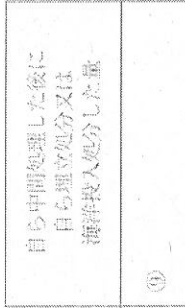 自ら中間処理した後に
自ら埋立処分又は
海洋投入処分した量
⑨